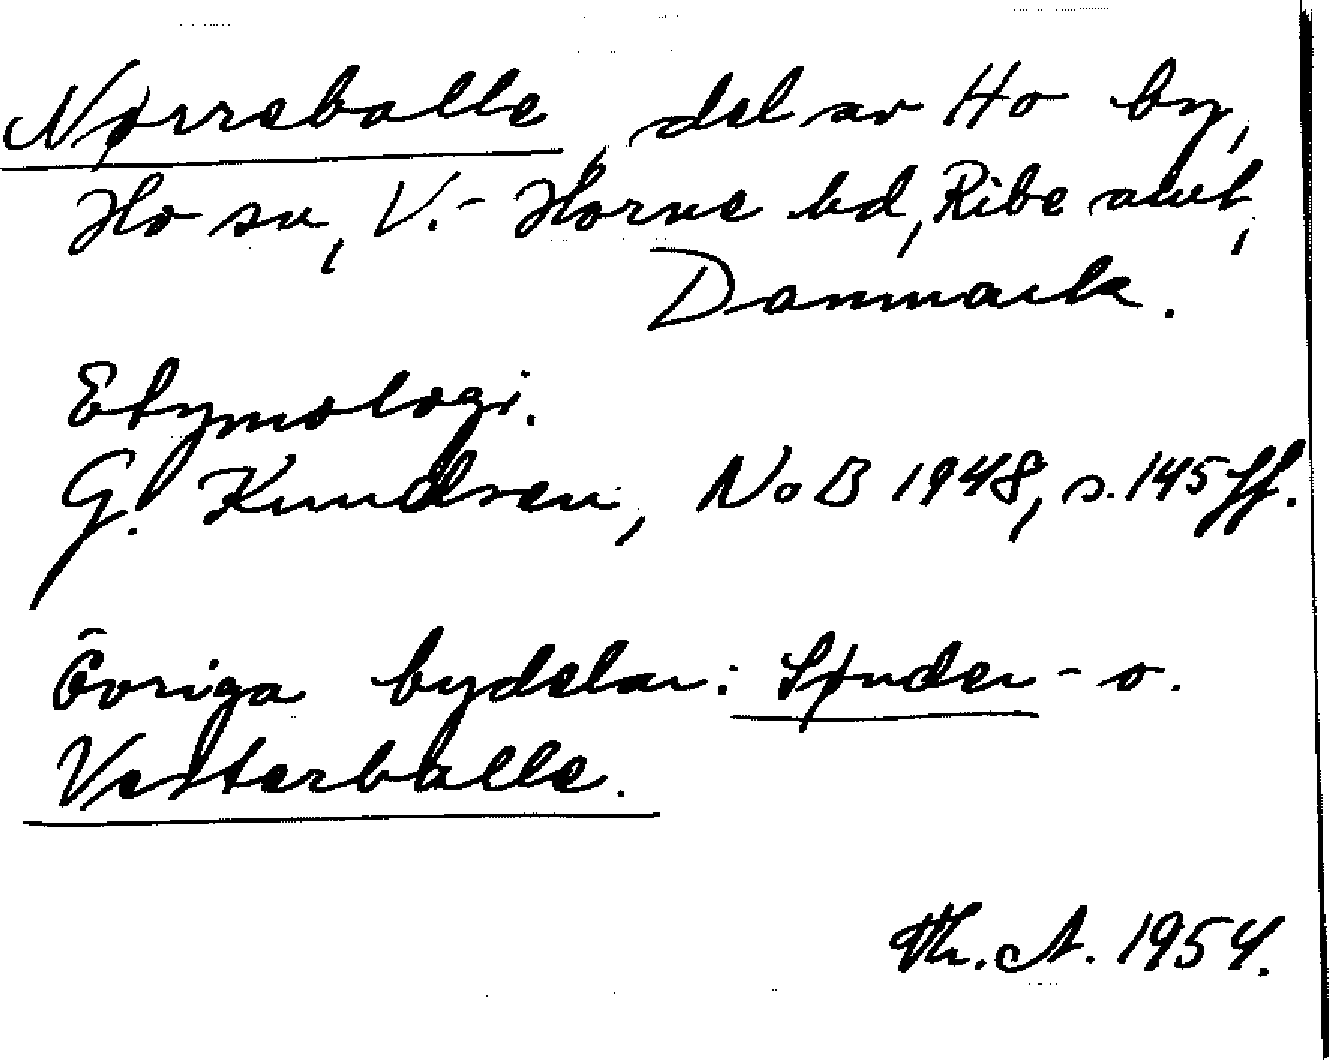 Nørreballe, del av Ho by,
Ho sn, V.- Horne hd, Ribe amt,
Danmark.
Etymologi.
G. Knudsen, NoB 1948, s. 145 ff.
Övriga bydelar: Sønder- o.
Vesterballe.
Th. A. 1954.